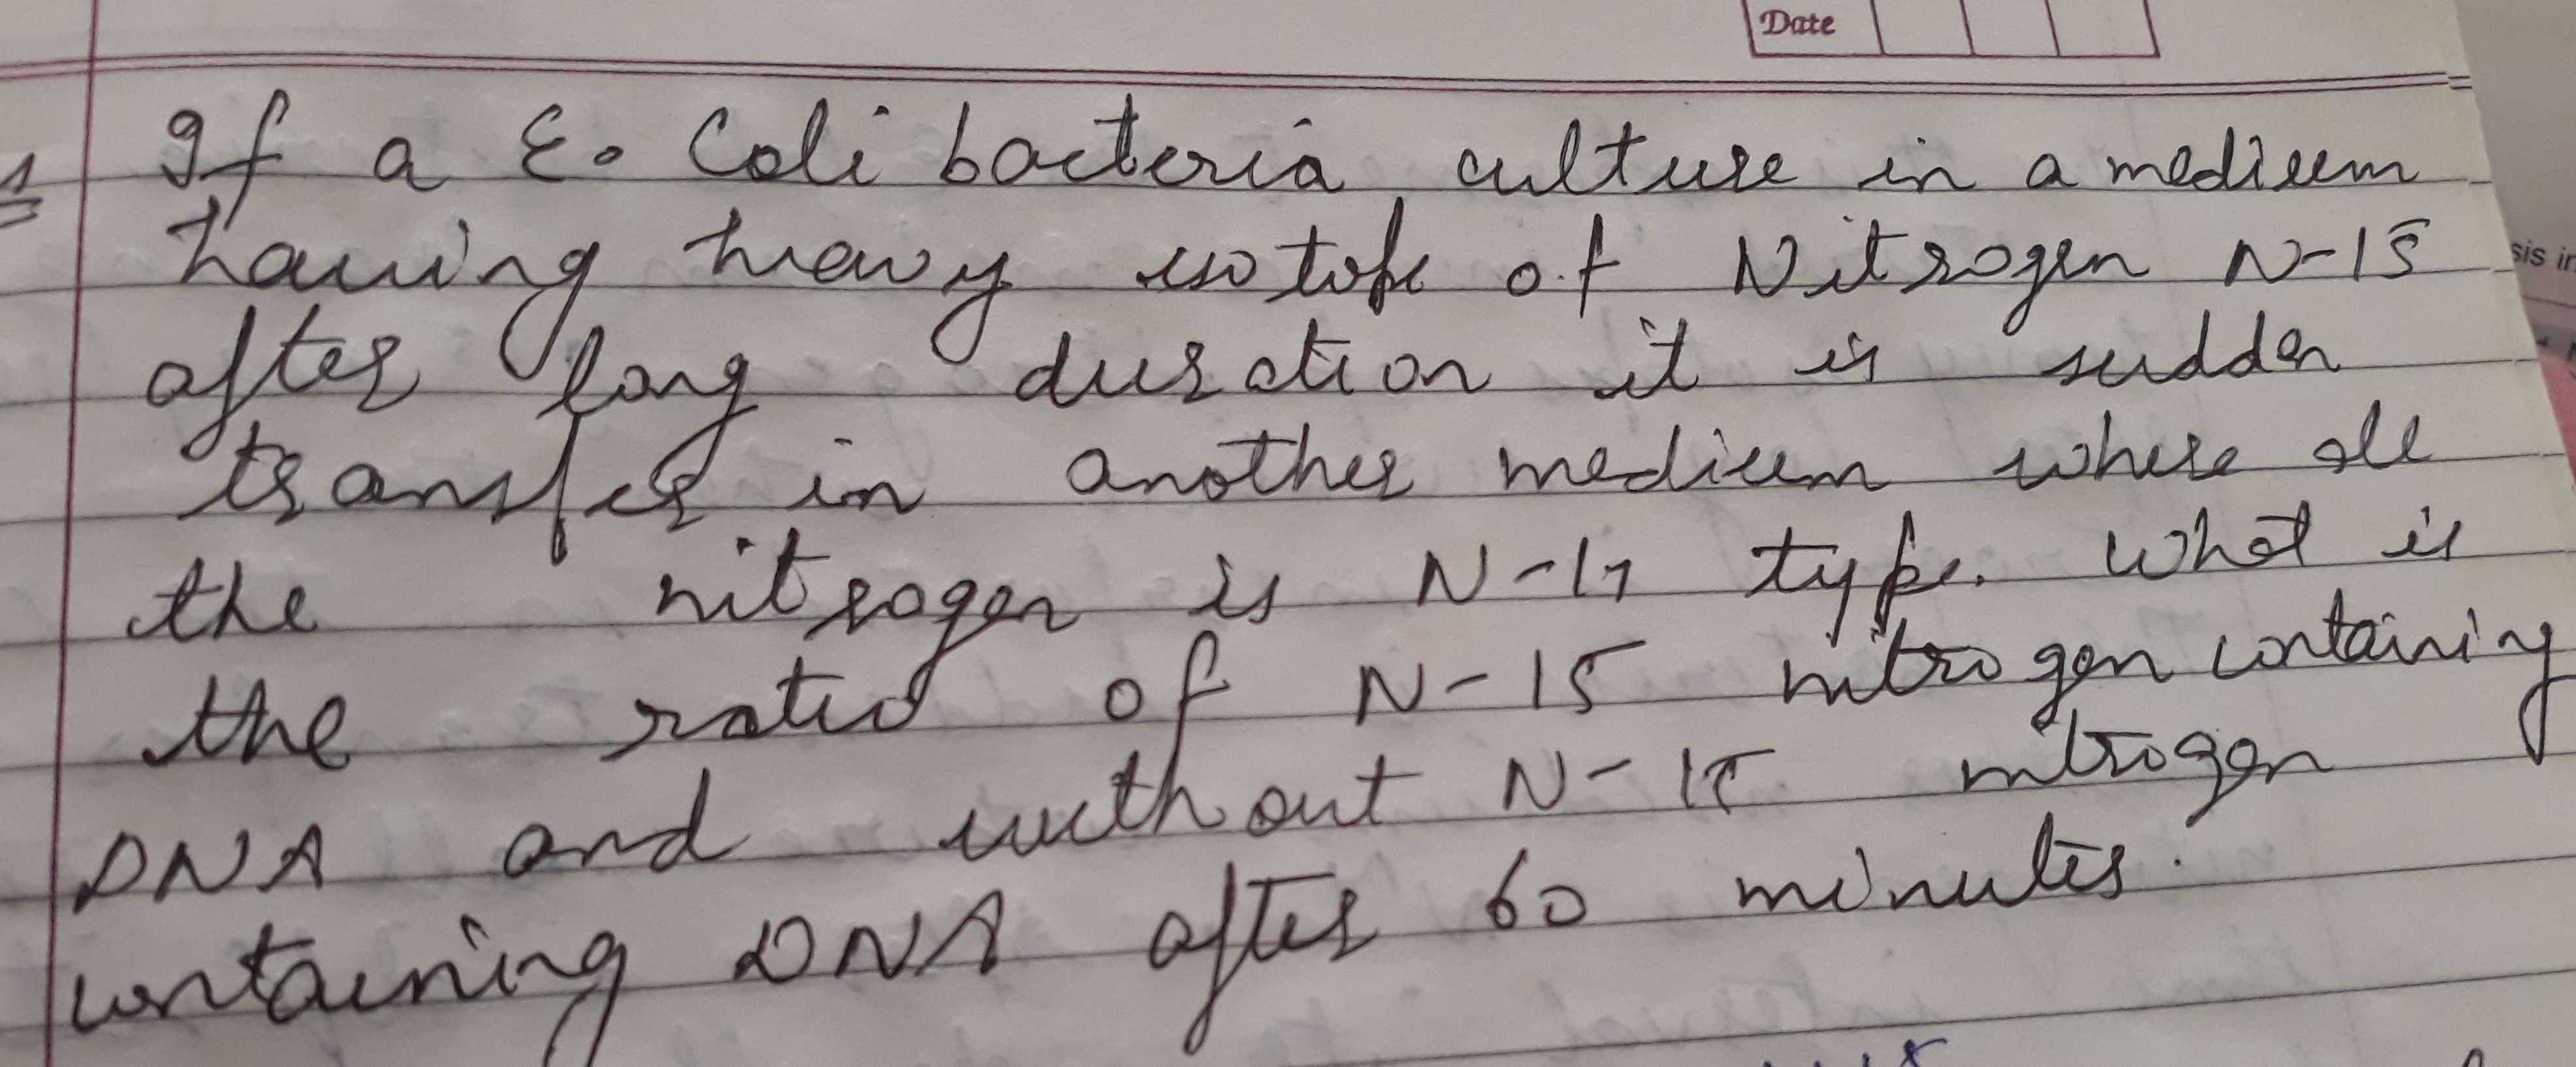 Date
1 If a E. Coli bacteria culture in a medium
having heavy isotope of Nitrogen N-15
after long duration it is sudden
transfer in another medium where all
the nitrogen is N-14 type. What is
the ratio of N-15 nitrogen containing
DNA and without N-15 nitrogen
containing DNA after 60 minutes.
sis in